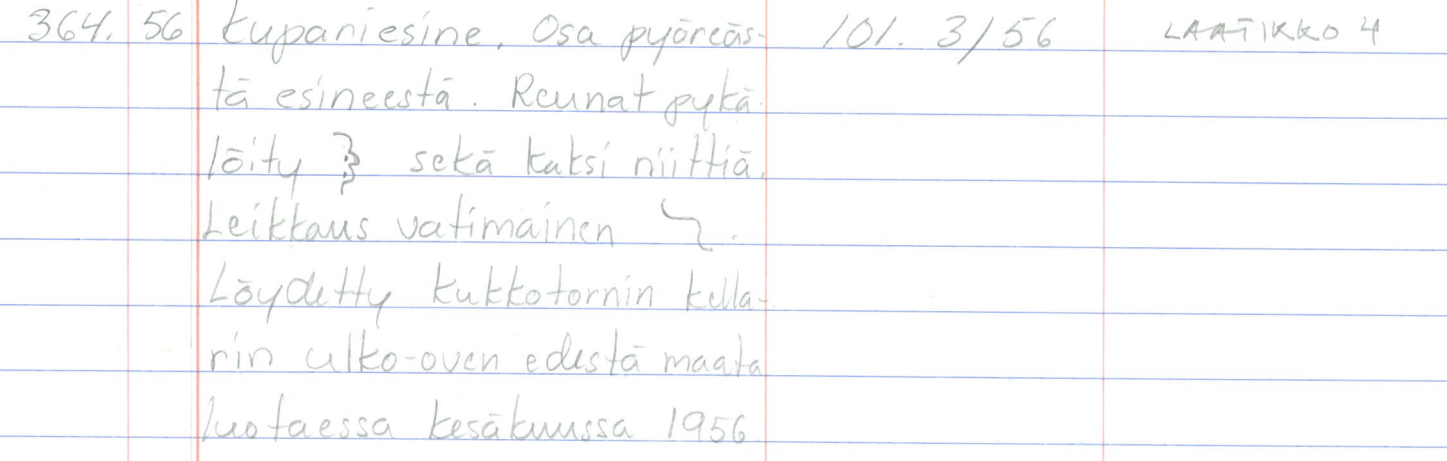 364. 56 Kupariesine. Osa pyöreäs- 101. 3/56 LAATIKKO 4
tä esineestä. Reunat pykä
löity sekä kaksi niittiä.
Leikkaus vatimainen .
Löydetty kukkotornin kella-
rin ulko-oven edestä maata
luotaessa kesäkuussa 1956